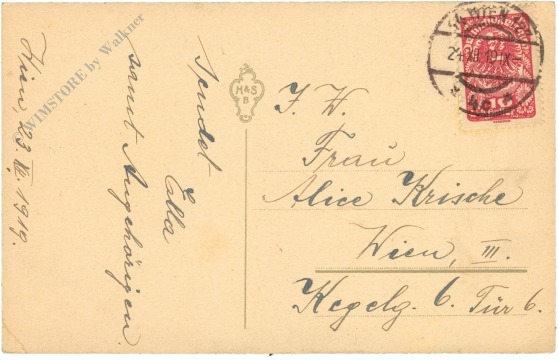 © WIMSTORE by Walkner
Wien, 23. XII. 1919.
sendet
Ella
samt Angehörigen.
M&S
B
WIEN
24.XII.19
I. W.
Frau
Alice Krische
Wien, III.
Kegelg. 6. Tür 6.